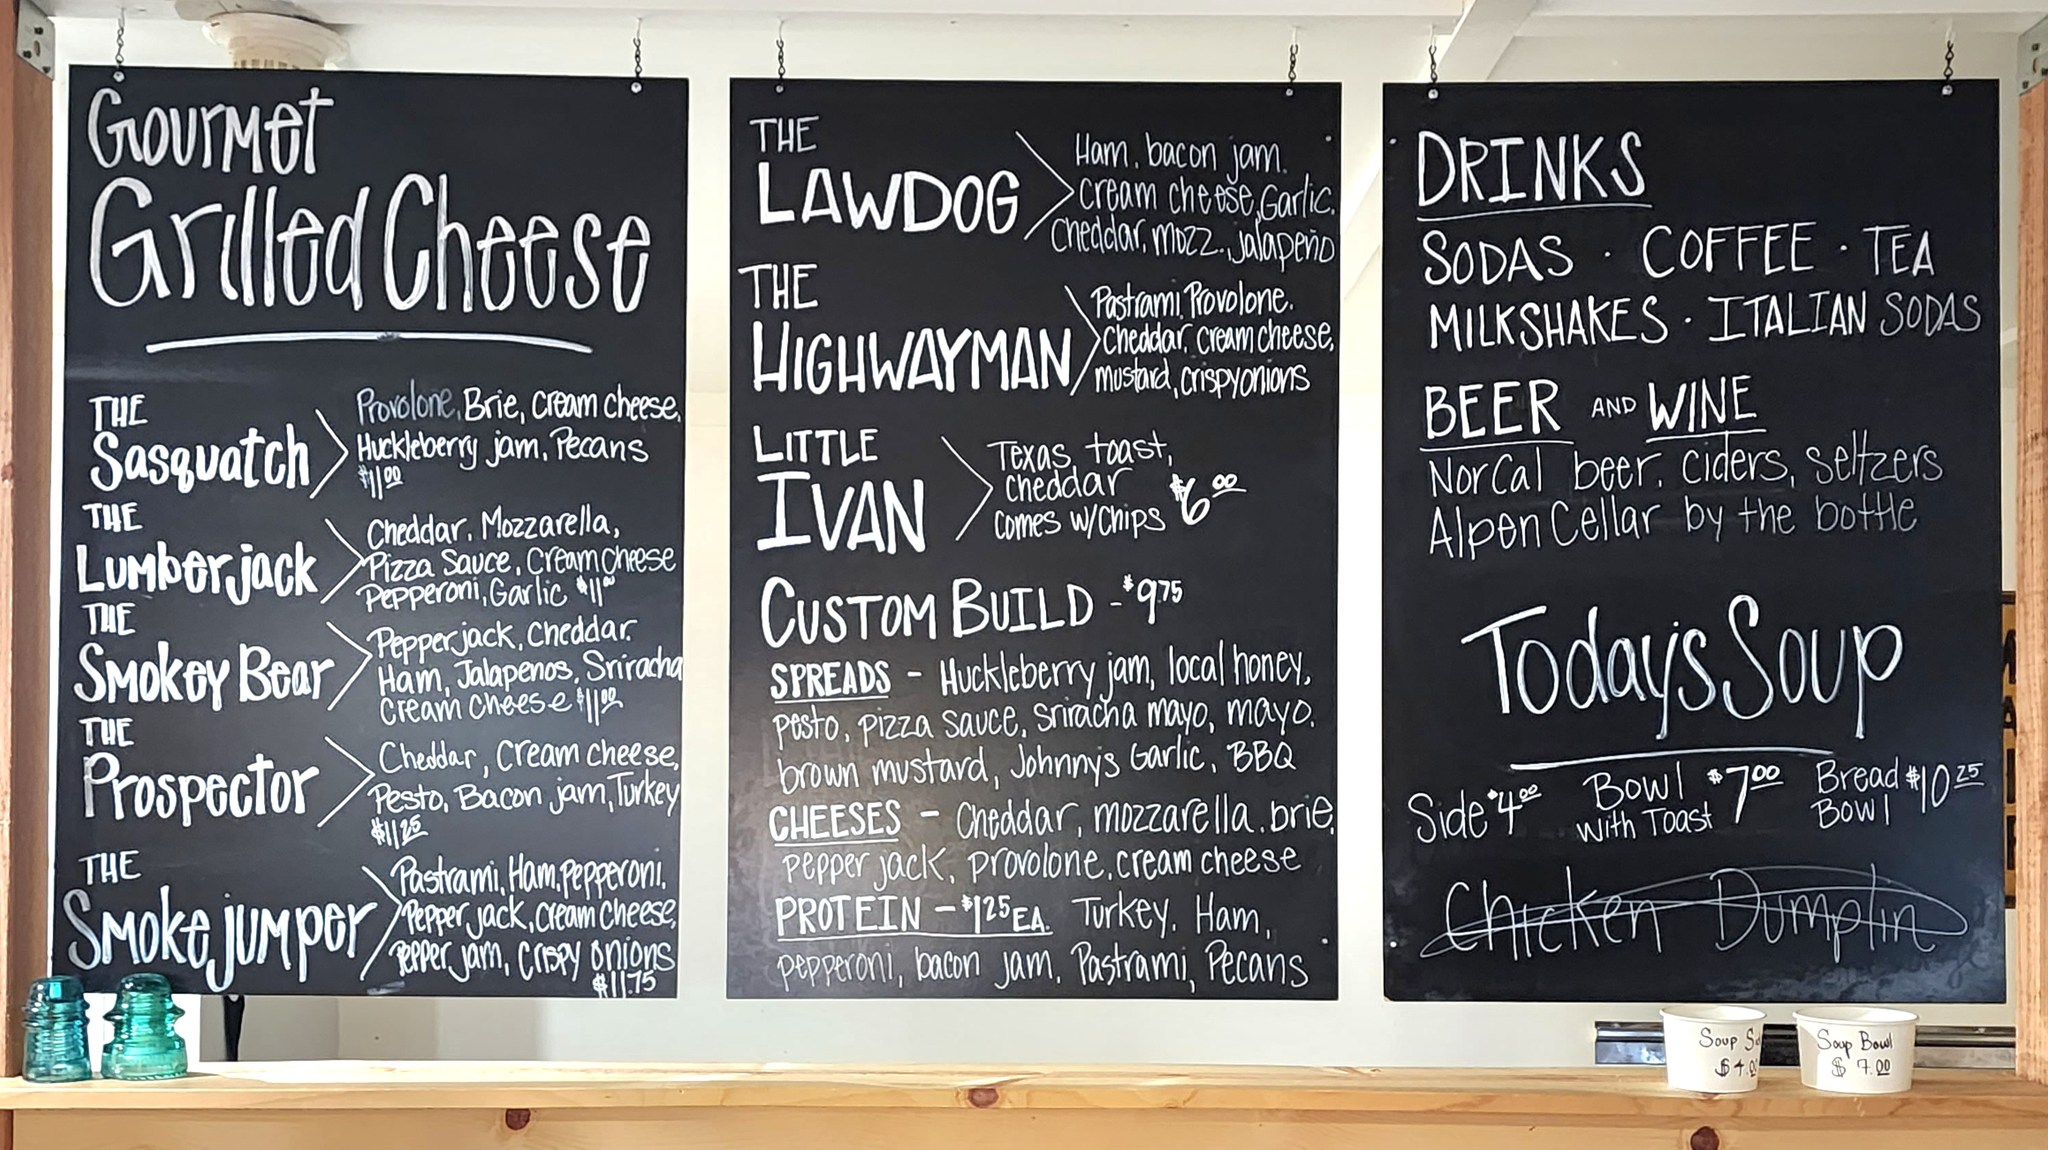 Gourmet
Grilled Cheese
THE
Sasquatch
Provolone, Brie, Cream cheese,
Huckleberry jam, Pecans
$11.00
THE
Lumberjack
Cheddar, Mozzarella,
Pizza Sauce, Cream cheese
Pepperoni, Garlic $11.00
THE
Smokey Bear
Pepperjack, Cheddar.
Ham, Jalapenos, Sriracha
Cream cheese $11.00
THE
Prospector
Cheddar, Cream cheese,
Pesto, Bacon jam, Turkey
$11.25
THE
Smokejumper
Pastrami, Ham, pepperoni,
Pepper jack, Cream cheese,
Pepper jam, Crispy onions
$11.75
THE
LAWDOG
Ham, bacon jam.
Cream cheese, Garlic.
Cheddar, mozz., jalapeño
THE
HIGHWAYMAN
Pastrami, Provolone.
Cheddar, cream cheese,
mustard, crispy onions
LITTLE
IVAN
Texas toast,
cheddar
Comes w/Chips $6.00
CUSTOM BUILD - $9.75
SPREADS - Huckleberry jam, local honey,
pesto, pizza sauce, sriracha mayo, mayo.
brown mustard, Johnnys Garlic, BBQ
CHEESES - Cheddar, mozzarella, brie,
pepper jack, provolone, cream cheese
PROTEIN - $1.25 EA. Turkey. Ham,
pepperoni, bacon jam, Pastrami, Pecans
DRINKS
SODAS · COFFEE · TEA
MILKSHAKES · ITALIAN SODAS
BEER AND WINE
NorCal beer, ciders, seltzers
Alpen Cellar by the bottle
Today's Soup
Side $4.00 Bowl with Toast $7.00 Bread Bowl $10.25
Chicken Dumplin
Soup
$4.
Soup Bowl
$7.00